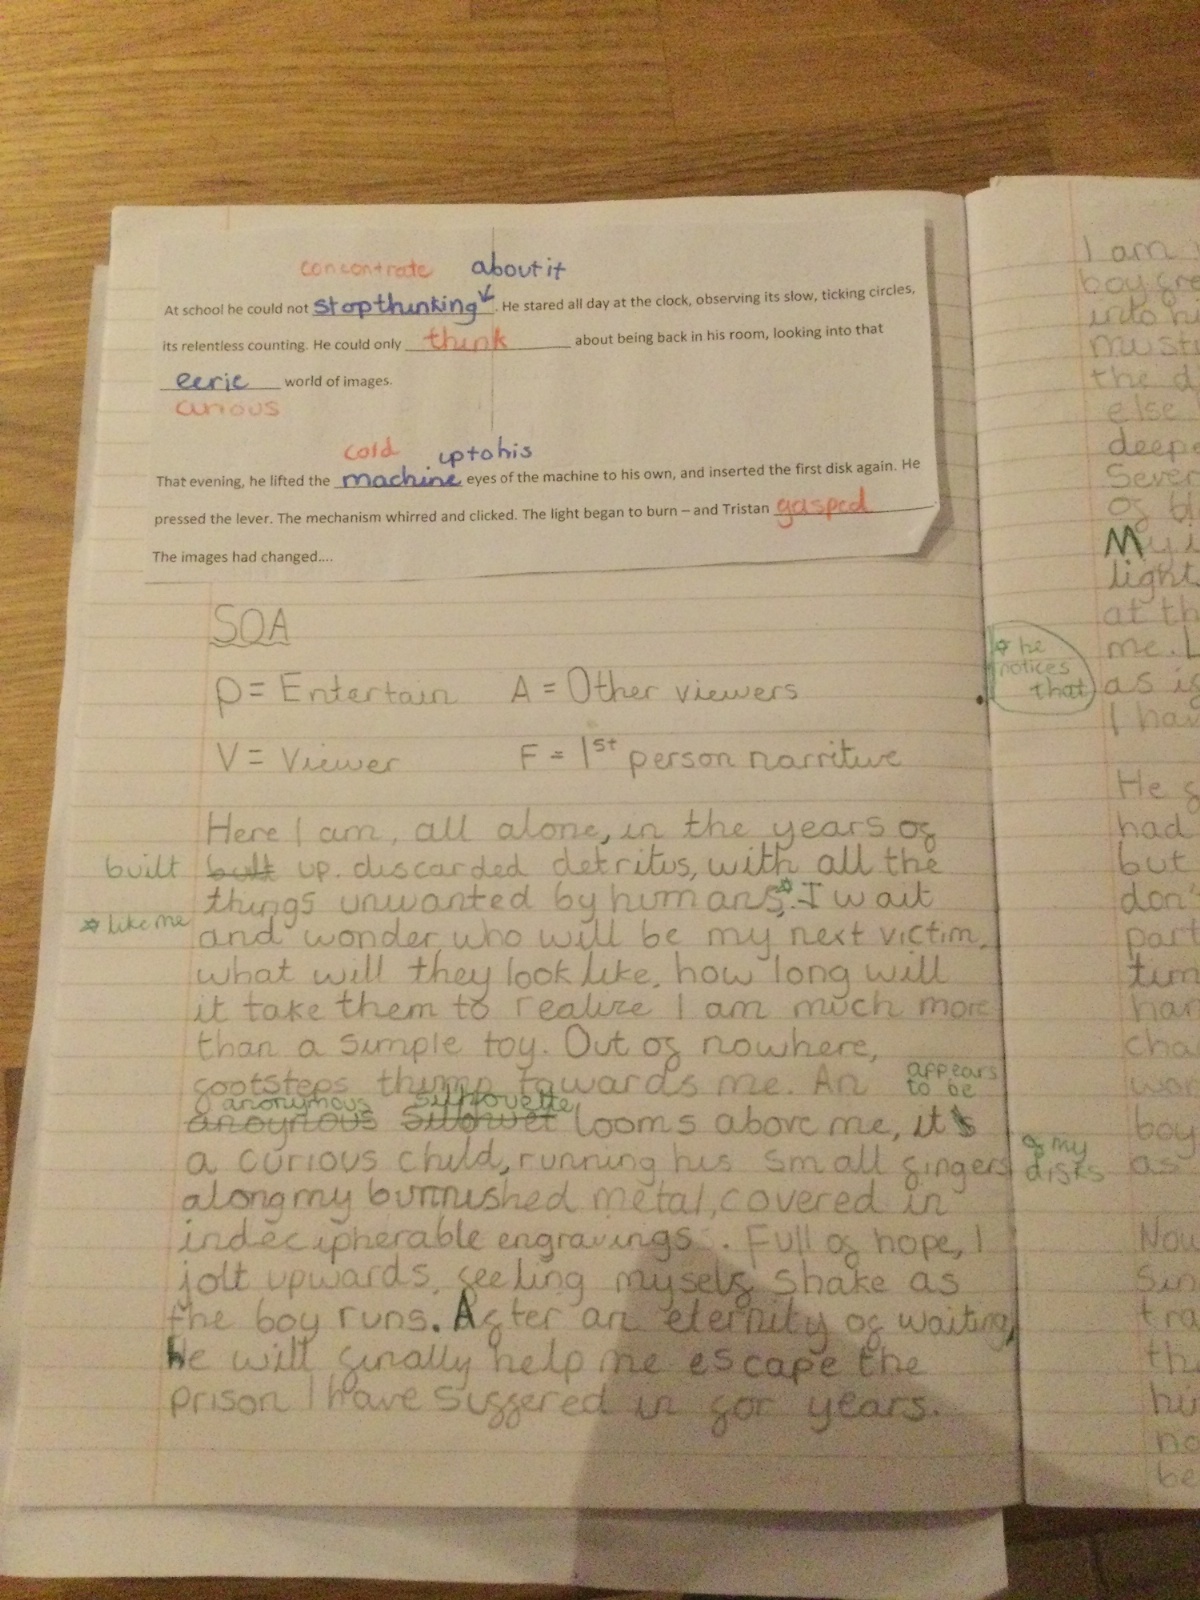 concontrate about it
At school he could not stop thinking. He stared all day at the clock, observing its slow, ticking circles,
its relentless counting. He could only think about being back in his room, looking into that
eerie world of images.
curious
cold up to his
That evening, he lifted the machine eyes of the machine to his own, and inserted the first disk again. He
pressed the lever. The mechanism whirred and clicked. The light began to burn – and Tristan gasped.
The images had changed....
SOA
P = Entertain A = Other viewers
V = Viewer F = 1st person narritive
Here I am, all alone, in the years of
built built up discarded detritus, with all the
things unwanted by humans*. I wait
* like me and wonder who will be my next victim,
what will they look like, how long will
it take them to realize I am much more
than a simple toy. Out of nowhere,
footsteps thump towards me. An appears to be
anonymous silhouette
anoynous sillowet looms above me, it's
a curious child, running his small fingers
along my burnished metal, covered in
indecipherable engravings. Full of hope, I
jolt upwards, feeling myself shake as
the boy runs. After an eternity of waiting,
He will finally help me escape the
prison I have suffered in for years.
* he
notices
that
of my
disks
I am
boy
into
the
else
deepe
Sever
of
My
light
at th
me.
as
I
He
had
but
don'
part
tim
har
cha
wor
boy
as
Now
Sin
tra
th
hi
no
be